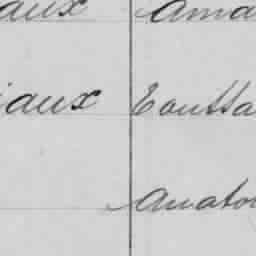 aux Ama
aux Toussa
Anato